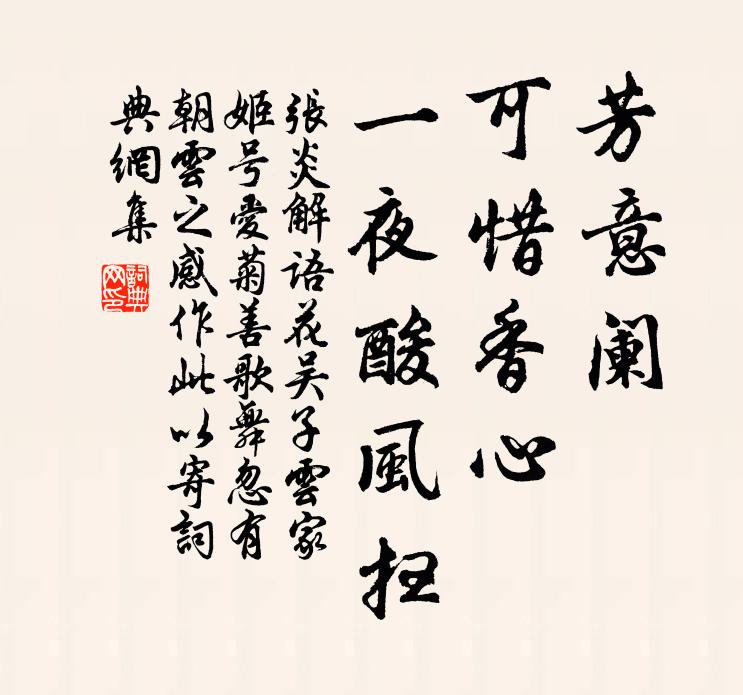 芳意阑
可惜香心
一夜酸风扫
張炎解語花吴子雲家
姬号愛菊善歌舞忽有
朝雲之感作此以寄詞
典網集
詞典網印